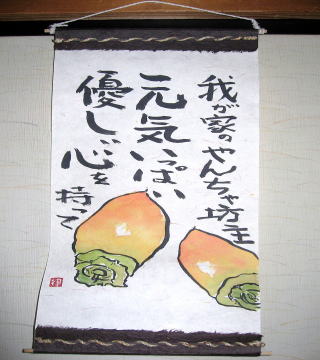 我が家のやんちゃ坊主
元気いっぱい
優しい心を
持って